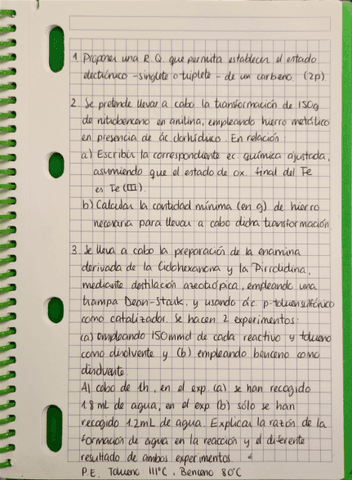 1. Proponer una R.Q. que permita establecer el estado
electrónico - singlete o triplete - de un carbeno. (2p)
2. Se pretende llevar a cabo la transformación de 150g
de nitrobenceno en anilina, empleando hierro metálico
en presencia de ác. clorhídrico. En relación:
a) Escribir la correspondiente ec química ajustada,
asumiendo que el estado de ox. final del Fe
es Fe (III).
b) Calcular la cantidad mínima (en g) de hierro
necesaria para llevar a cabo dicha transformación
3. Se lleva a cabo la preparación de la enamina
derivada de la Ciclohexanona y la Pirrolidina,
mediante destilación azeotrópica, empleando una
trampa Dean-Stark, y usando ác p-toluensulfónico
como catalizador. Se hacen 2 experimentos:
(a) empleando 150mmol de cada reactivo y tolueno
como disolvente y (b) empleando benceno como
disolvente.
Al cabo de 1h, en el exp. (a) se han recogido
1.8 mL de agua, en el exp (b) sólo se han
recogido 1.2mL de agua. Explicar la razón de la
formación de agua en la reacción y el diferente
resultado de ambos experimentos.
P.E. Tolueno 111°C, Benceno 80°C